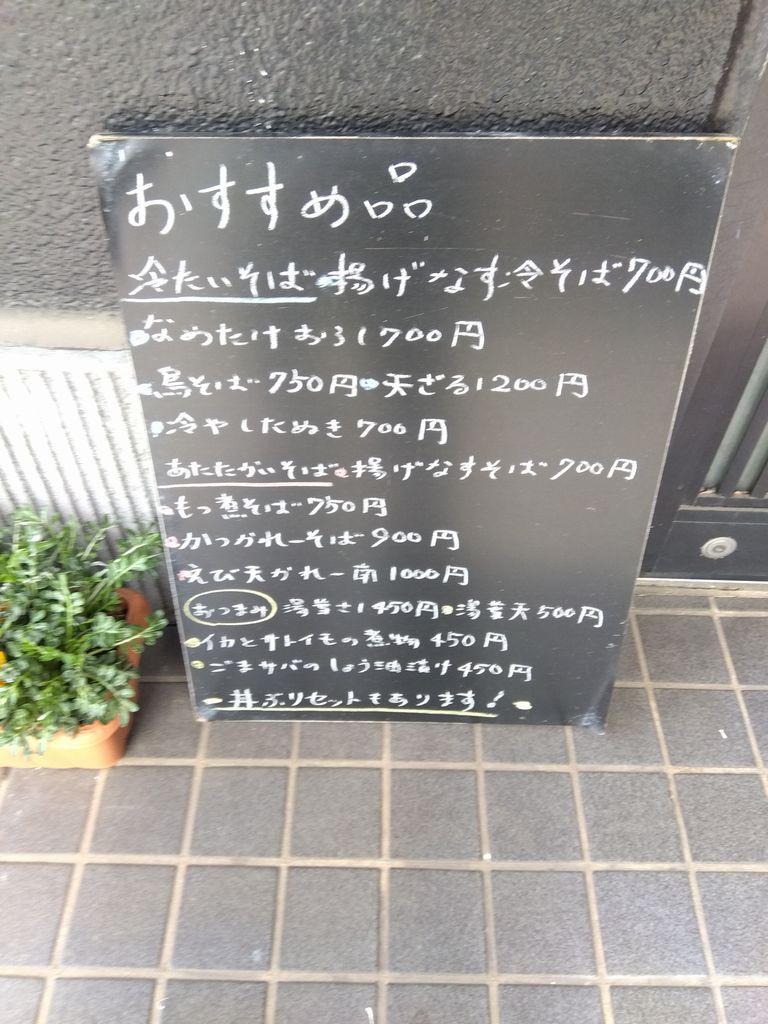 おすすめ品
冷たいそば・揚げなす冷そば700円
・なめたけおろし700円
・鳥そば750円・天ざる1200円
・冷やしたぬき700円
あたたかいそば・揚げなすそば700円
・もつ煮そば750円
・かつカレーそば900円
・えび天カレー南1000円
おつまみ 湯葉さし450円・湯葉天500円
・イカとサトイモの煮物450円
・ごまサバのしょう油漬け450円
ー丼ぶりセットもあります！ー